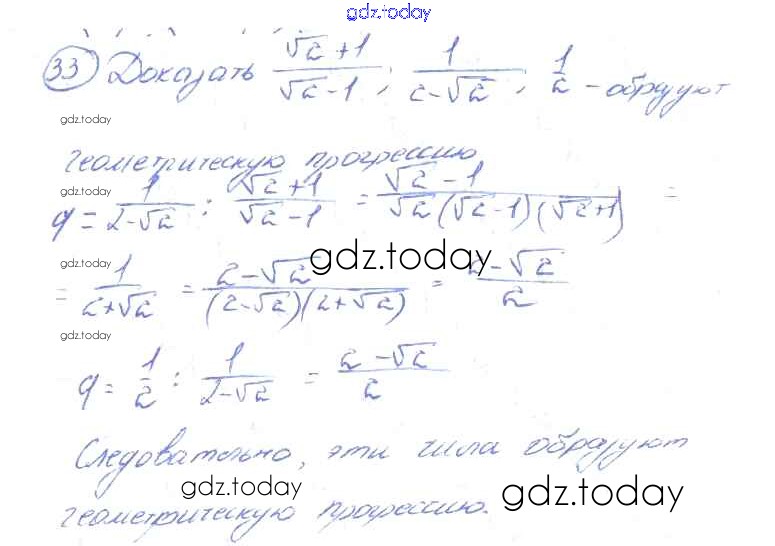 gdz.today
33 Доказать (√2+1)/(√2-1); 1/(2-√2); 1/2 - образуют
gdz.today
геометрическую прогрессию
gdz.today
q = 1/(2-√2) : (√2+1)/(√2-1) = (√2-1)/(√2(√2-1)(√2+1)) =
gdz.today gdz.today
= 1/(2+√2) = (2-√2)/((2-√2)(2+√2)) = (2-√2)/2
gdz.today
q = 1/2 : 1/(2-√2) = (2-√2)/2
Следовательно, эти числа образуют
gdz.today gdz.today
геометрическую прогрессию.